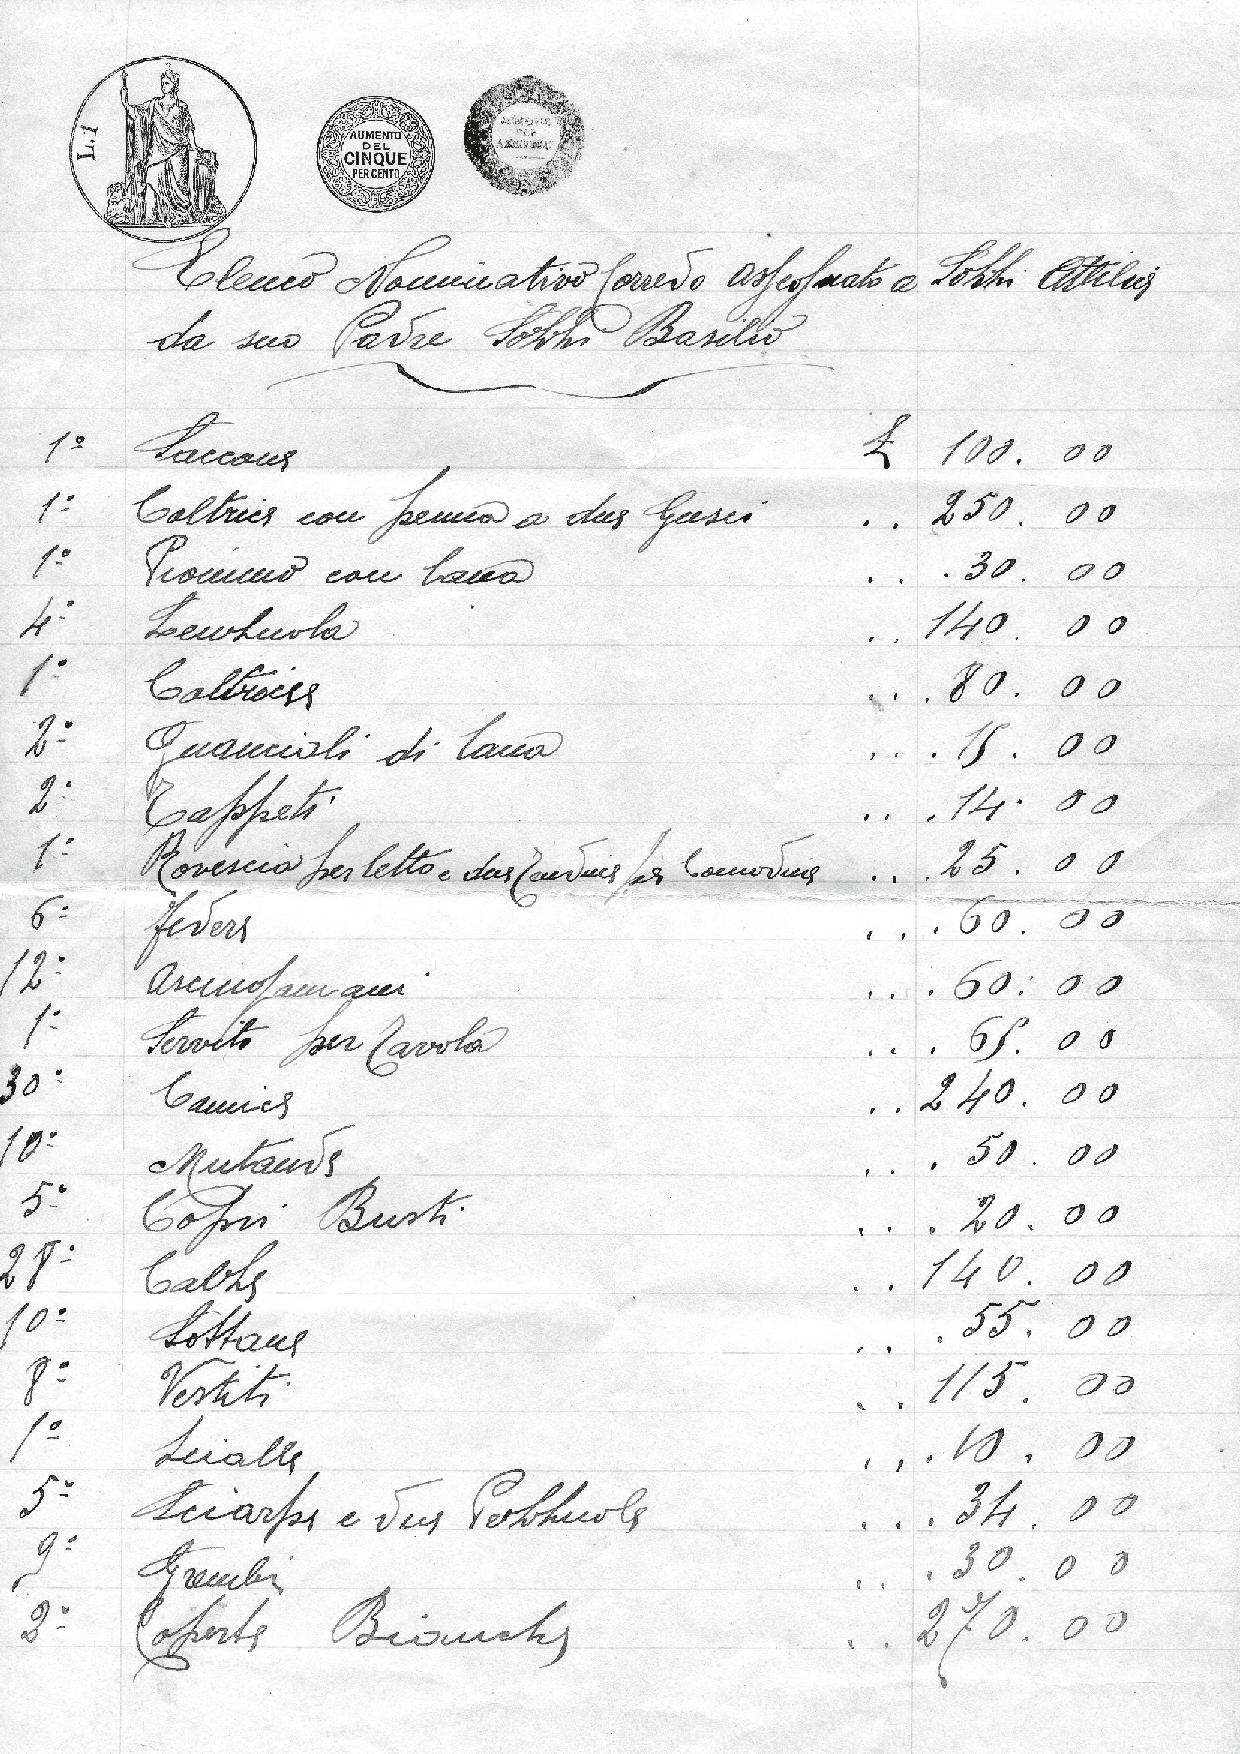 L.1
AUMENTO
DEL
CINQUE
PER CENTO
Elenco Nominativo Corredo assegnato a
da suo Padre Basilio
1º Saccone £ 100.00
1º Coltrice con penna a due Gusci .. 250.00
1º Piomino con lana ... 30.00
4º Lenzuola .. 140.00
1º Coltrice ... 80.00
2º Guanciali di lana ... 15.00
2º Tappeti ... 14.00
1º Rovescia per letto e due Tendine per Comodine ... 25.00
6º federe ... 60.00
12º asciugamani ... 60.00
1º Servito per Tavola ... 65.00
30º Camice .. 240.00
10º Mutande ... 50.00
5º Copri Busti ... 20.00
28º Calze .. 140.00
10º Sottane ... 55.00
8º Vestiti .. 115.00
1º Scialle ... 10.00
5º Sciarpe e due Pezzuole ... 34.00
9º Grembi ... 30.00
2º Coperte Bianche .. 270.00